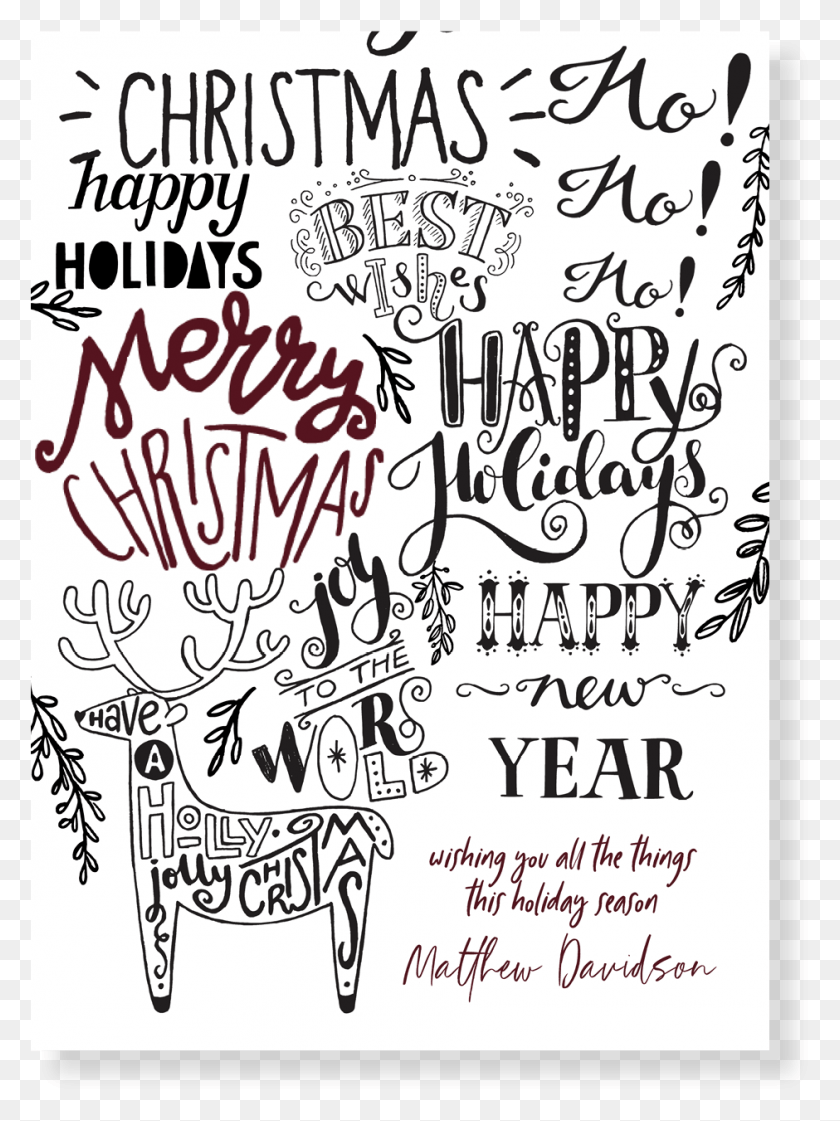 CHRISTMAS
Ho!
Ho!
Ho!
happy
HOLIDAYS
BEST
wishes
Merry
CHRISTMAS
HAPPY
Holidays
joy
TO THE
WORLD
HAPPY
new
YEAR
HAVE
A
HOLLY
jolly
CHRISTMAS
wishing you all the things
this holiday season
Matthew Davidson